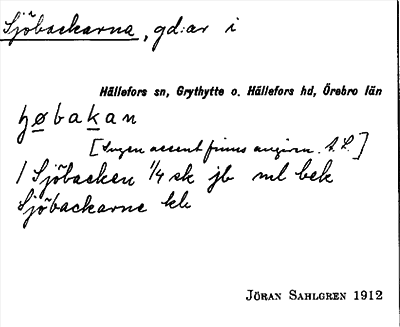 Sjöbackarna, gd:ar i
Hällefors sn, Grythytte o. Hällefors hd, Örebro län
ɧøbakan
[Ingen accent finns angiven. S.L.]
1 Sjöbacken 1/4 sk jb ml bek
Sjöbackarne kk
JÖRAN SAHLGREN 1912